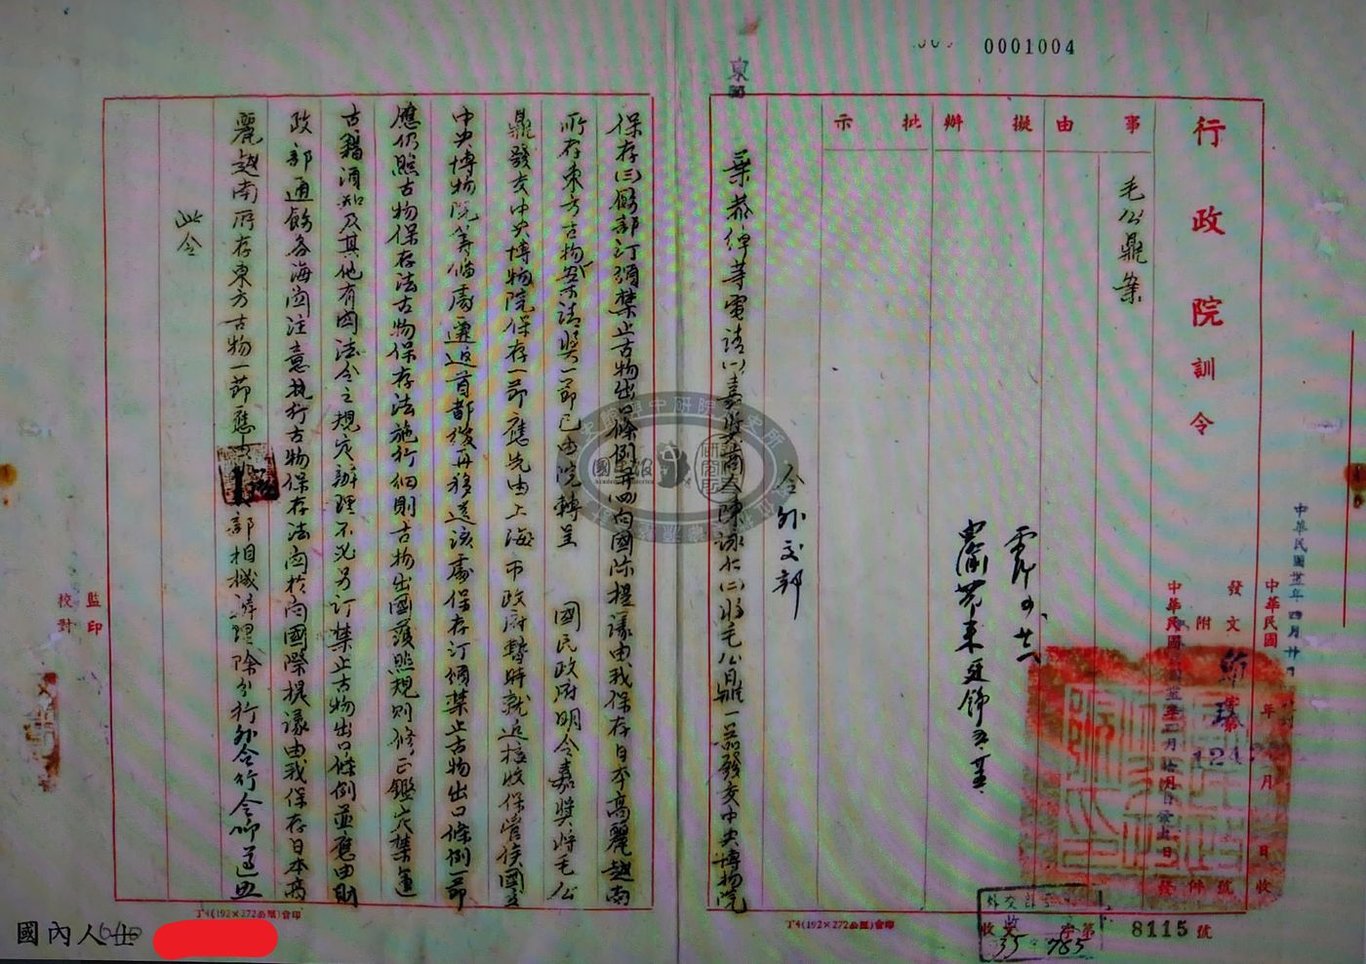 0001004
行政院訓令
事由
擬辦
批示
毛公鼎案
令外交部
葉恭綽等電請(一)嘉獎商人陳詠仁(二)將毛公鼎一器發交中央博物院
保存(三)飭部訂頒禁止古物出口條例(四)向國際提議由我保存日本高麗越南
所存東方古物案請獎一節已由院轉呈 國民政府明令嘉獎將毛公
鼎發交中央博物院保存一節應先由上海市政府暫時就近接收保管俟國立
中央博物院籌備處遷返首都後再移送該處保存訂頒禁止古物出口條例一節
應仍照古物保存法古物保存法施行細則古物出國護照規則修正鑑定禁運
古籍須知及其他有關法令之規定辦理不必另訂禁止古物出口條例並應由財
政部通飭各海關注意執行古物保存法關於向國際提議由我保存日本高
麗越南所存東方古物一節應由 部相機辦理除分行外合行令仰遵照
此令
監印
校對
發文
附
中華民國
年 月 日收
中華民國卅五年四月廿
8115號
丁4(192×272公厘)會印
丁4(192×272公厘)會印
國內人士